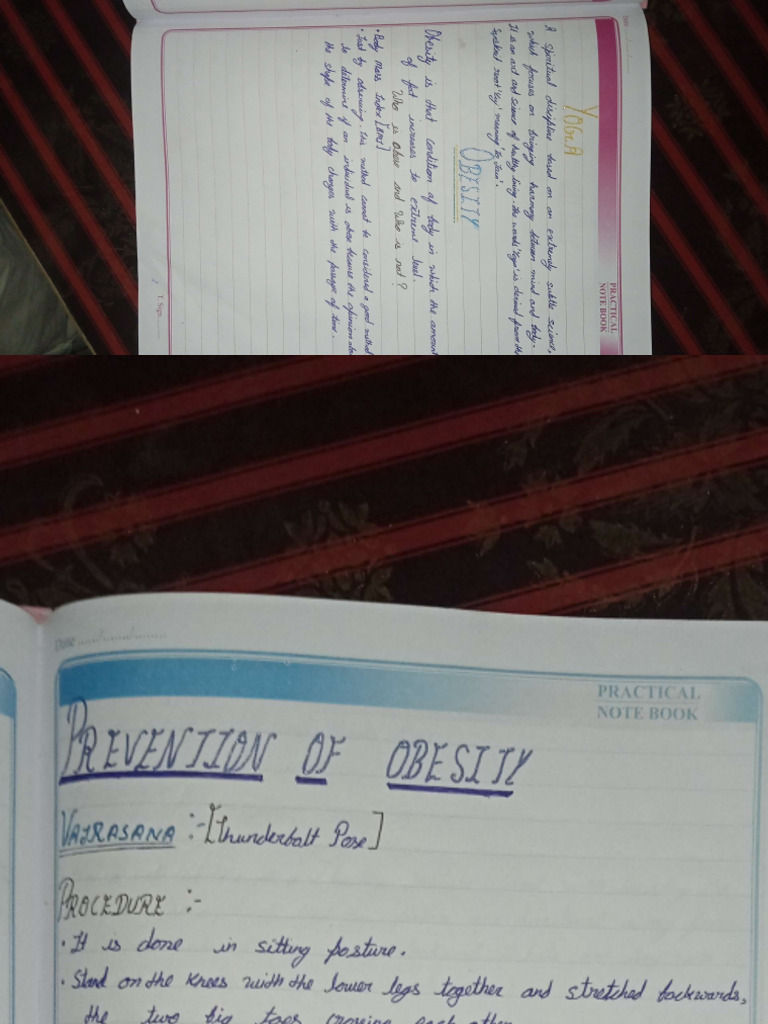 Date
PRACTICAL
NOTE BOOK
YOGA
A spiritual discipline based on an extremely subtle science,
which focuses on bringing harmony between mind and body.
It is an art and science of healthy living. the words 'yoga' is derived from the
Sanskrit root 'Yuj' meaning 'to Join'.
OBESITY
Obesity is that condition of body in which the amount
of fat increases to extreme level.
Who is obese and Who is not?
• Body mass Index [BMI]
• Just by observing. this method cannot be considered a good method
to determine if an individual is obese because the opinions about
the shape of the body changes with the passage of time.
T. Sign.
Date
PRACTICAL
NOTE BOOK
PREVENTION OF OBESITY
VAJRASANA :- [thunderbolt Pose]
PROCEDURE :-
• It is done in sitting posture.
• Stand on the knees with the lower legs together and stretched backwards,
the two big toes crossing each other.